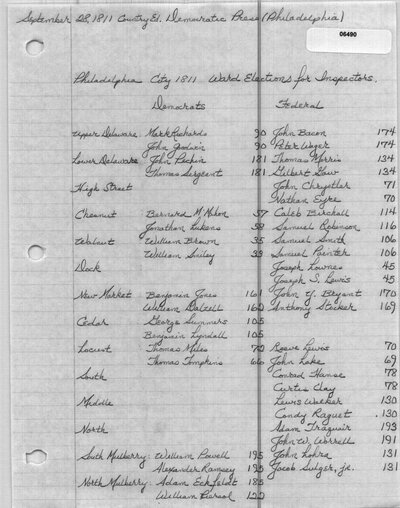 September 28, 1811 Country Ed. Democratic Press (Philadelphia)
06490
Philadelphia City 1811 Ward Elections for Inspectors.
Democrats Federal
Upper Delaware Mark Richards 90 John Bacon 174
John Goodwin 90 Peter Wager 174
Lower Delaware John Peckin 181 Thomas Morris 134
Thomas Sergeant 181 Gilbert Gaw 134
High Street John Chrystler 71
Nathan Eyre 70
Chesnut Bernard M. Mahon 37 Caleb Birchall 114
Jonathan Lukens 38 Samuel Robinson 116
Walnut William Brown 35 Samuel Smith 106
William Smiley 33 Samuel Painter 106
Dock Joseph Lownes 45
Joseph S. Lewis 45
New Market Benjamin Jones 161 John Y. Bryant 170
William Dalzell 162 Anthony Stocker 169
Cedar George Summers 105
Benjamin Lyndall 105
Locust Thomas Miles 72 Reeve Lewis 70
Thomas Tompkins 66 John Lake 69
South Conrad Hanse 78
Curtis Clay 78
Middle Lewis Walker 130
Condy Raguet 130
North Adam Traquair 193
John W. Worrell 191
South Mulberry: William Powell 195 John Lohra 131
Alexander Ramsey 195 Jacob Sulger, jr. 131
North Mulberry: Adam Eckfeldt 185
William Persol